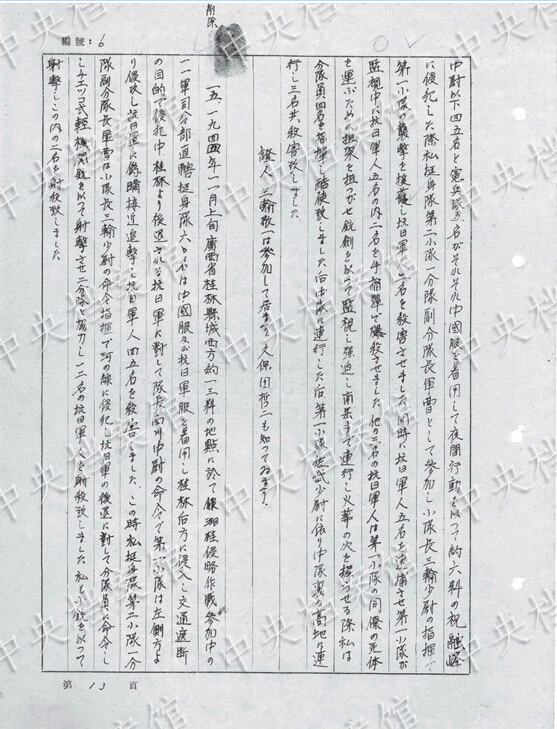 編號:6
削除
中尉以下四五名と憲兵隊五名がそれぞれ中國服を着用して夜間行動を以つて約六粁の祝融峰
に侵犯した際私挺身隊第二小隊一分隊副分隊長軍曹として参加し小隊長三輪少尉の指揮で
第一小隊の襲撃を援護し抗日軍人 名を殺害させました 同時に抗日軍人五名を逮捕させ第一小隊が
監視中に抗日軍人五名の内二名を手榴弾で爆殺させました 他の三名の抗日軍人は第一小隊の同僚の死体
を運ぶため担架を担つがせ銃剣を以つて監視し強迫し南岳まで連行し火葬の穴を掘らせる際私は
分隊員四名を指揮し酷使致しました后中隊に連行した后第一小隊 少尉に依り中隊裏の高地に連
行し三名共、殺害致しました
證人、三輪敬一は参加して居ます、久保田哲二も知つてゐます、
一五、一九四四年一一月上旬廣西省桂林縣城西方約一三粁の地點に於て 湘桂侵略作戰参加中の
一一軍司令部直轄挺身隊六〇名は中國服及抗日軍服を着用し桂林后方に侵入し交通遮断
の目的で侵犯中桂林より後退される抗日軍に對して隊長 中尉の命令で第一小隊は左側方よ
り侵犯し抗日軍に 接近追撃し抗日軍人四五名を殺害しました、この時私挺身隊第二小隊一分
隊副分隊長軍曹は小隊長三輪少尉の命令指揮で河の線に侵犯し抗日軍の後退に對して分隊員に命令し
チエツコ式輕機関銃を以つて射撃させ二分隊と協力し一二名の抗日軍人を射殺致しました 私も小銃を以つて
射撃しこの内の二名を射殺致しました
第 13 頁
中央档案馆